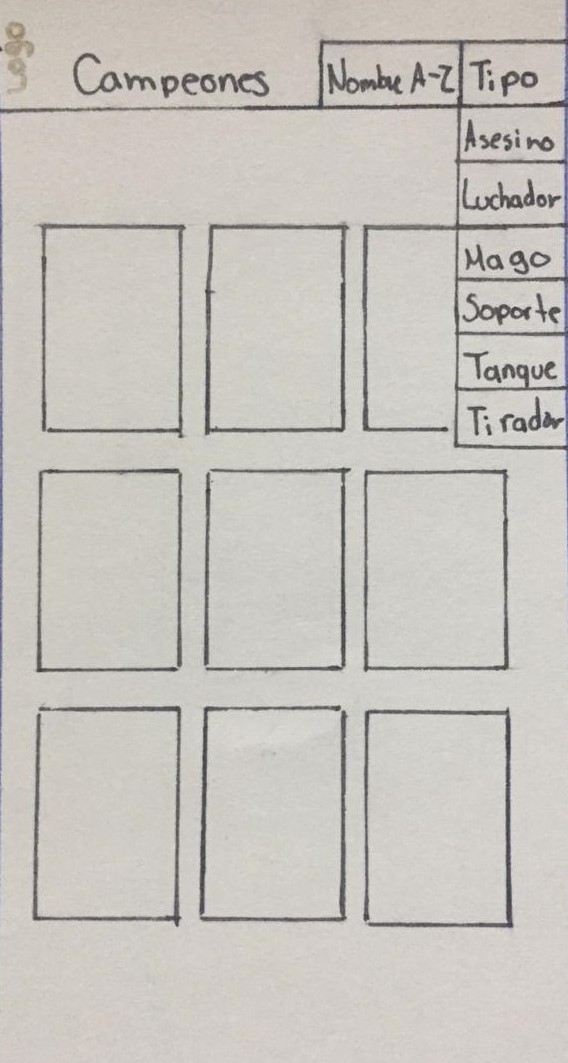 Logo
Campeones
Nombre A-Z
Tipo
Asesino
Luchador
Mago
Soporte
Tanque
Tirador